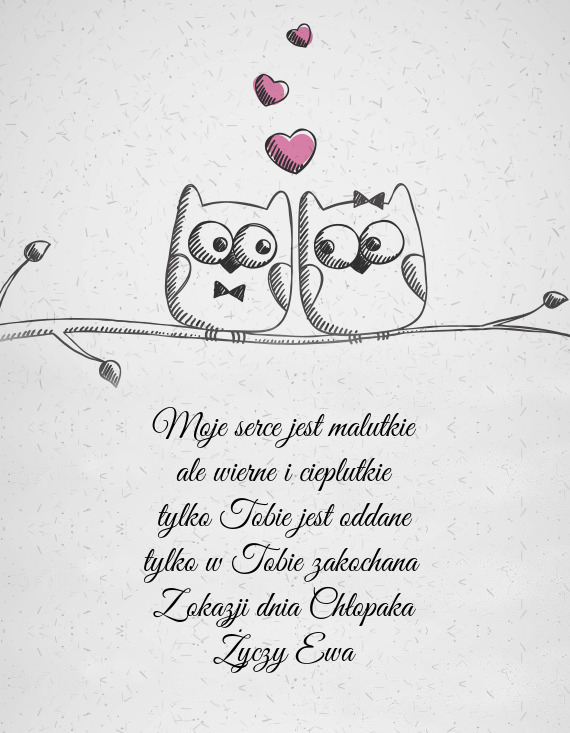 Moje serce jest malutkie
ale wierne i cieplutkie
tylko Tobie jest oddane
tylko w Tobie zakochana
Zokazji dnia Chłopaka
Życzy Ewa